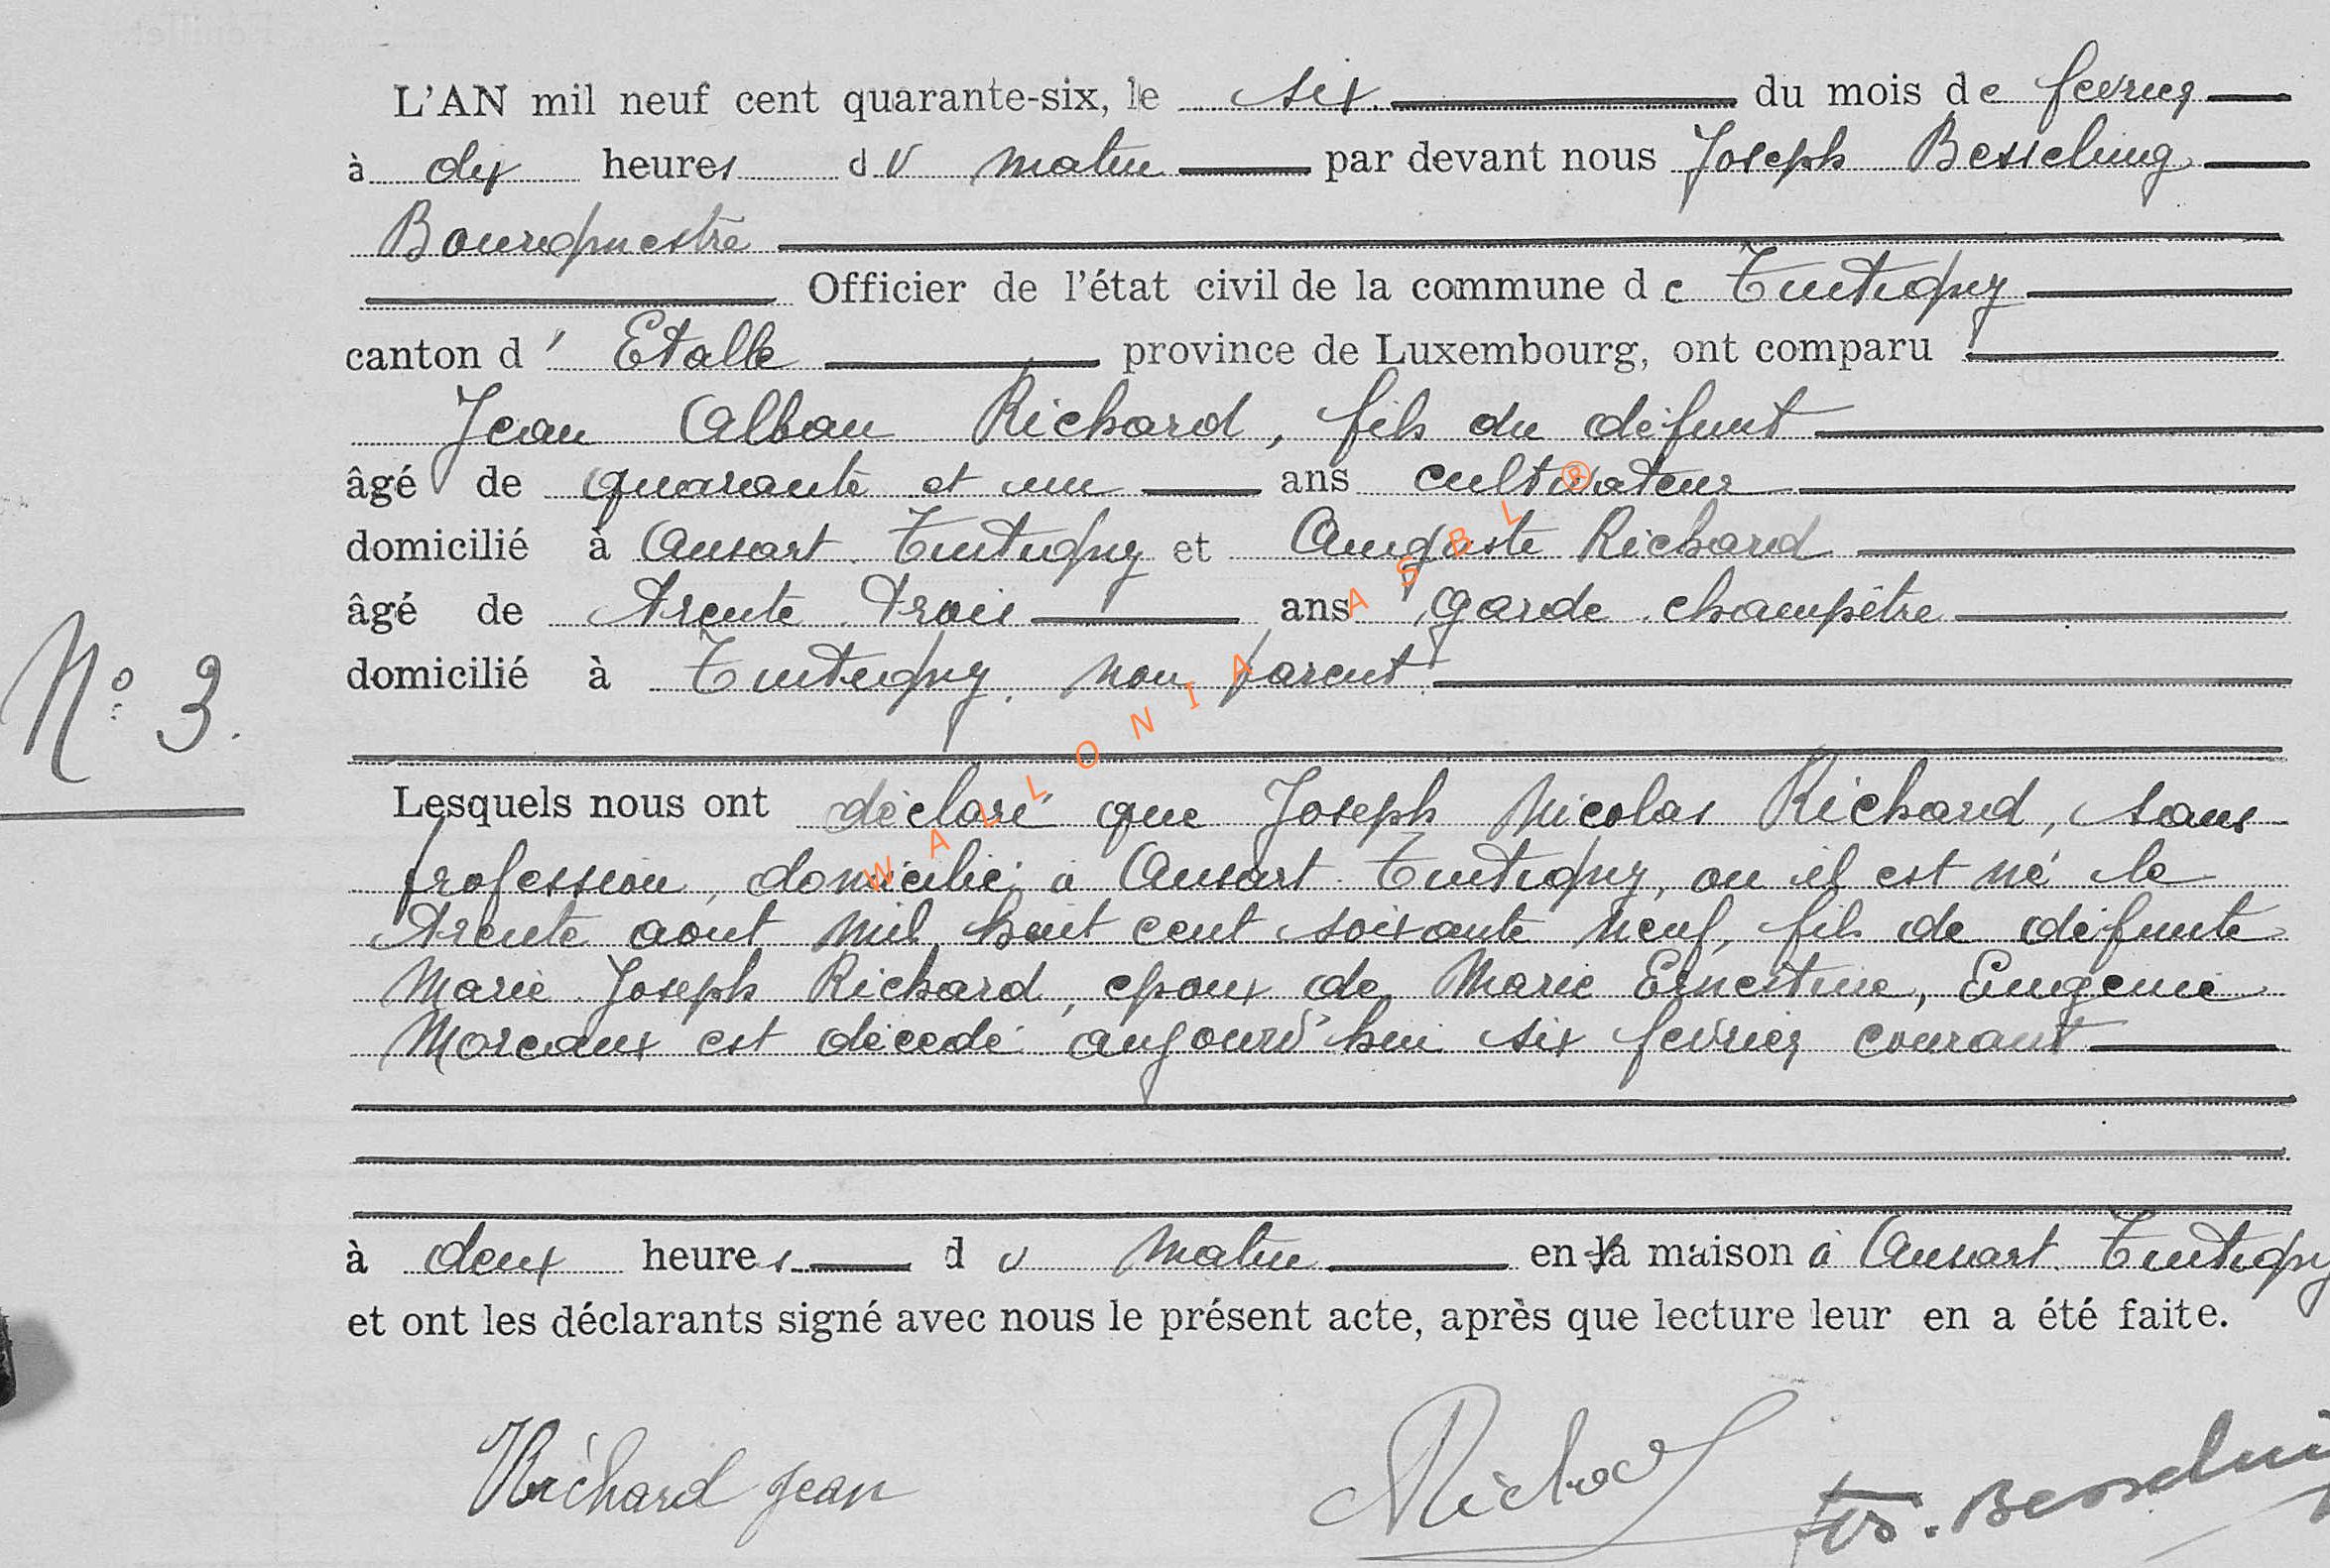 L'AN mil neuf cent quarante-six, le six du mois de fevrier
à dix heures du matin par devant nous Joseph Besseling
Bourgmestre
Officier de l'état civil de la commune de Tintigny
canton d' Etalle province de Luxembourg, ont comparu
Jean Alban Richard, fils du défunt
âgé de quarante et un ans cultivateur
domicilié à Ansart Tintigny et Auguste Richard
âgé de trente trois ans garde champêtre
domicilié à Tintigny, non parent
N° 3.
Lesquels nous ont déclaré que Joseph Nicolas Richard, sans
profession, domicilié à Ansart Tintigny, ou il est né le
trente aout mil huit cent soixante neuf, fils de défunte
Marie Joseph Richard, epoux de Marie Ernestine, Eugenie
Moreaux est décedé aujourd'hui six fevrier courant
à deux heures du matin en sa maison à Ansart Tintigny
et ont les déclarants signé avec nous le présent acte, après que lecture leur en a été faite.
Richard Jean Richard Jos. Besseling
WALLONIA ASBL ®